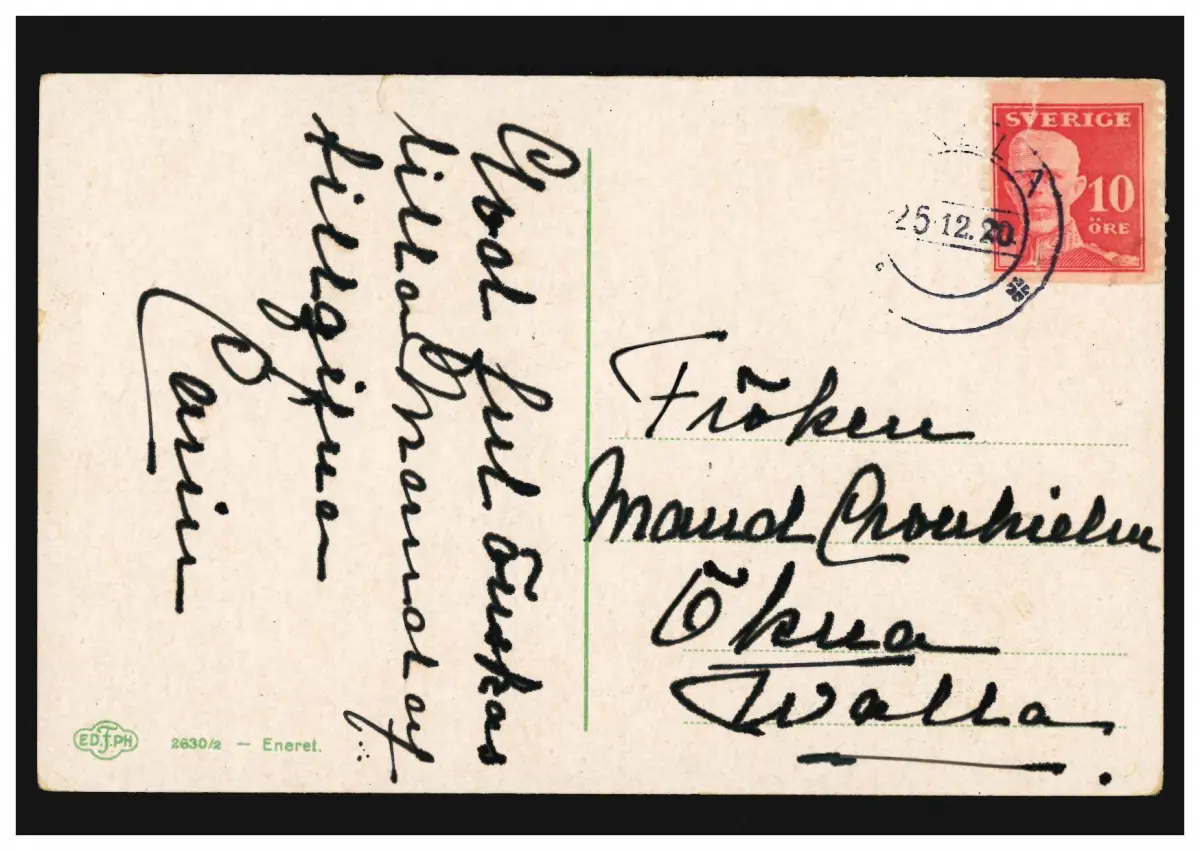 God jul önskas
lilla Maud af
tillgifna
Carin
SVERIGE
10
ÖRE
25.12.20.
Fröken
Maud Cronhielm
Ökna
Walla.
ED.F.PH
2630/2 — Eneret.